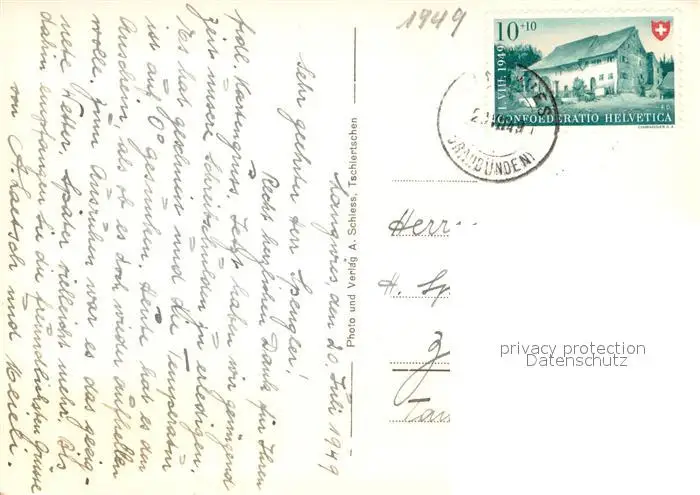 1949
10+10
1. VIII. 1949
CONFOEDERATIO HELVETICA
COURVOISIER S.A.
(GRAUBÜNDEN)
Langwies, den 20. Juli 1949
Sehr geehrter Herr Spengler!
Recht herzlichen Dank für Ihren
frdl. Kartengruss. Jetzt haben wir genügend
Zeit unsere Schreibschulden zu erledigen.
Es hat geschneit und die Temperatur
ist auf 0° gesunken. Heute hat es den
Anschein, als ob es doch wieder aufhellen
wolle. Zum Ausruhen war es das geeig-
nete Wetter, später vielleicht mehr. Bis
dahin empfangen Sie die freundlichsten Grüsse
von A. und Heidi.
Photo und Verlag A. Schiess, Tschiertschen
Herr
H. Sp
Z
privacy protection
Datenschutz